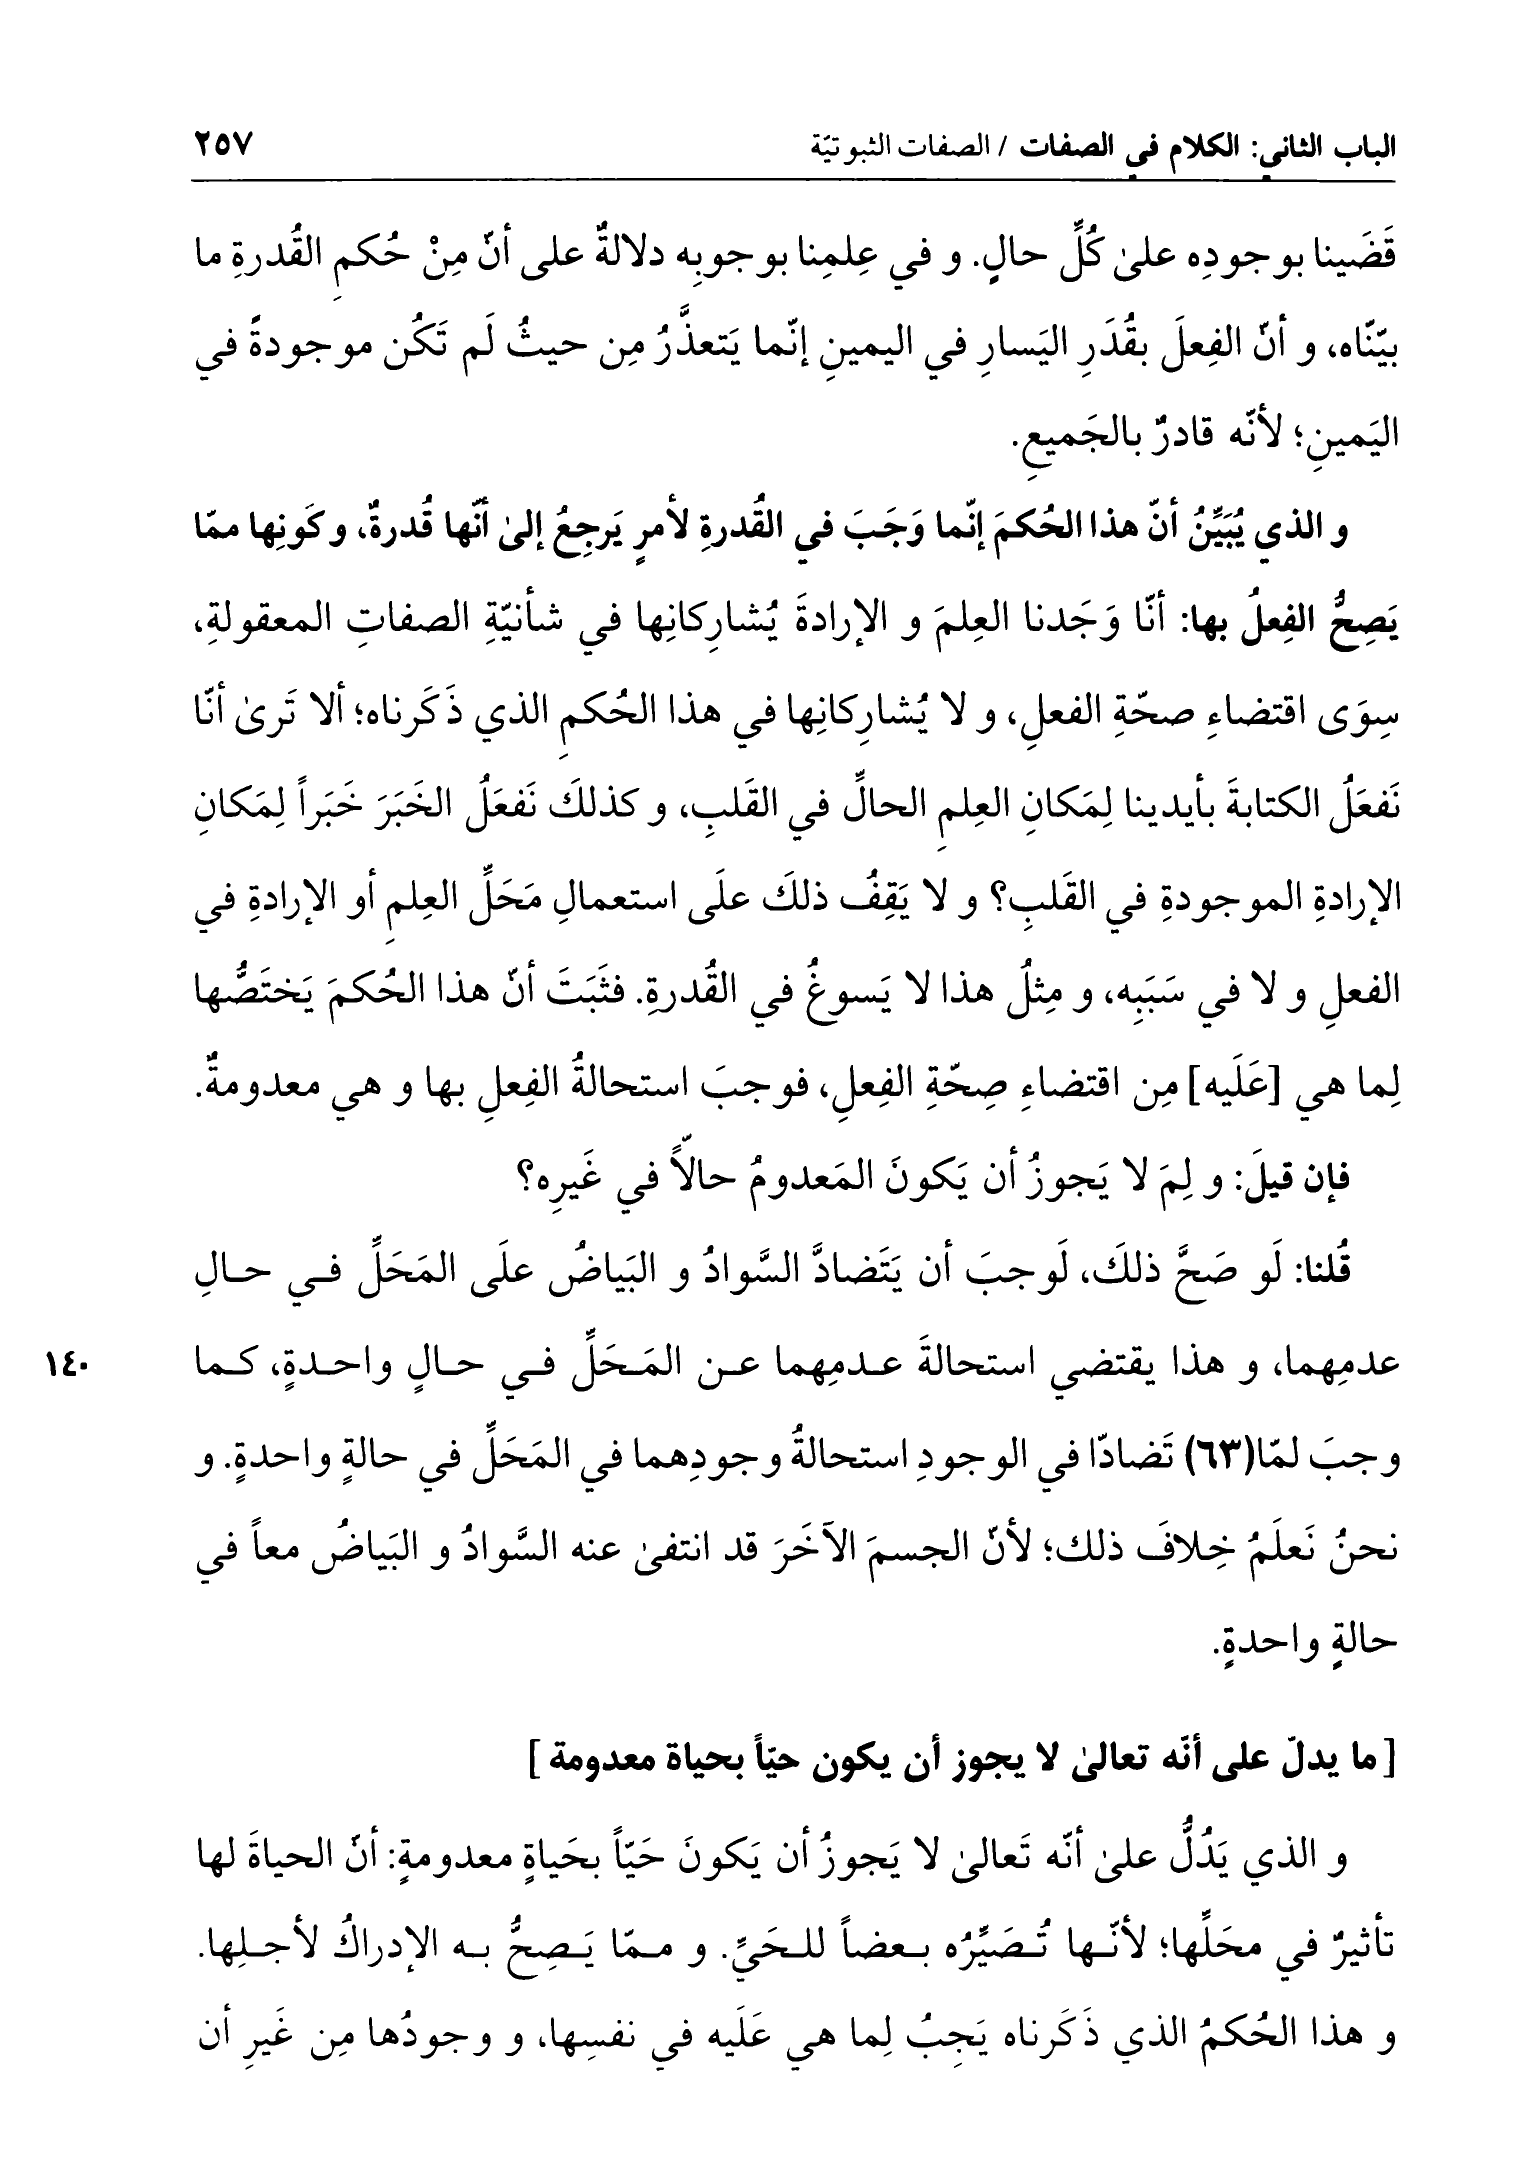 الباب الثاني: الكلام في الصفات / الصفات الثبوتيّة ٢٥٧
قَضَينا بوجودِه علىٰ كُلِّ حالٍ. و في عِلمِنا بوجوبِه دلالةٌ على أنّ مِنْ حُكمِ القُدرةِ ما
بيّنّاه، و أنّ الفِعلَ بقُدَرِ اليَسارِ في اليمينِ إنّما يَتعذَّرُ مِن حيثُ لَم تَكُن موجودةً في
اليَمينِ؛ لأنّه قادرٌ بالجَميعِ.
و الذي يُبَيِّنُ أنّ هذا الحُكمَ إنّما وَجَبَ في القُدرةِ لأمرٍ يَرجِعُ إلىٰ أنّها قُدرةٌ، و كَونِها ممّا
يَصِحُّ الفِعلُ بها: أنّا وَجَدنا العِلمَ و الإرادةَ يُشارِكانِها في شأنيّةِ الصفاتِ المعقولةِ،
سِوَى اقتضاءِ صحّةِ الفعلِ، و لا يُشارِكانِها في هذا الحُكمِ الذي ذَكَرناه؛ ألا تَرىٰ أنّا
نَفعَلُ الكتابةَ بأيدينا لِمَكانِ العِلمِ الحالِّ في القَلبِ، و كذلكَ نَفعَلُ الخَبَرَ خَبَراً لِمَكانِ
الإرادةِ الموجودةِ في القَلبِ؟ و لا يَقِفُ ذلكَ علَى استعمالِ مَحَلِّ العِلمِ أو الإرادةِ في
الفعلِ و لا في سَبَبِه، و مِثلُ هذا لا يَسوغُ في القُدرةِ. فثَبَتَ أنّ هذا الحُكمَ يَختَصُّها
لِما هي [عَلَيه] مِن اقتضاءِ صِحّةِ الفِعلِ، فوجبَ استحالةُ الفِعلِ بها و هي معدومةٌ.
فإن قيلَ: و لِمَ لا يَجوزُ أن يَكونَ المَعدومُ حالّاً في غَيرِه؟
قُلنا: لَو صَحَّ ذلكَ، لَوجبَ أن يَتَضادَّ السَّوادُ و البَياضُ علَى المَحَلِّ فـي حـالِ
عدمِهما، و هذا يقتضي استحالةَ عـدمِهما عـن المَـحَلِّ فـي حـالٍ واحـدةٍ، كـما
١٤٠
وجبَ لمّا(٦٣) تَضادّا في الوجودِ استحالةُ وجودِهما في المَحَلِّ في حالةٍ واحدةٍ. و
نحنُ نَعلَمُ خِلافَ ذلك؛ لأنّ الجسمَ الآخَرَ قد انتفىٰ عنه السَّوادُ و البَياضُ معاً في
حالةٍ واحدةٍ.
[ ما يدلّ على أنّه تعالىٰ لا يجوز أن يكون حيّاً بحياة معدومة ]
و الذي يَدُلُّ علىٰ أنّه تَعالىٰ لا يَجوزُ أن يَكونَ حَيّاً بحَياةٍ معدومةٍ: أنّ الحياةَ لها
تأثيرٌ في محَلِّها؛ لأنّـها تُـصَيِّرُه بـعضاً للـحَيِّ. و مـمّا يَـصِحُّ بـه الإدراكُ لأجـلِها.
و هذا الحُكمُ الذي ذَكَرناه يَجِبُ لِما هي عَلَيه في نفسِها، و وجودُها مِن غَيرِ أن